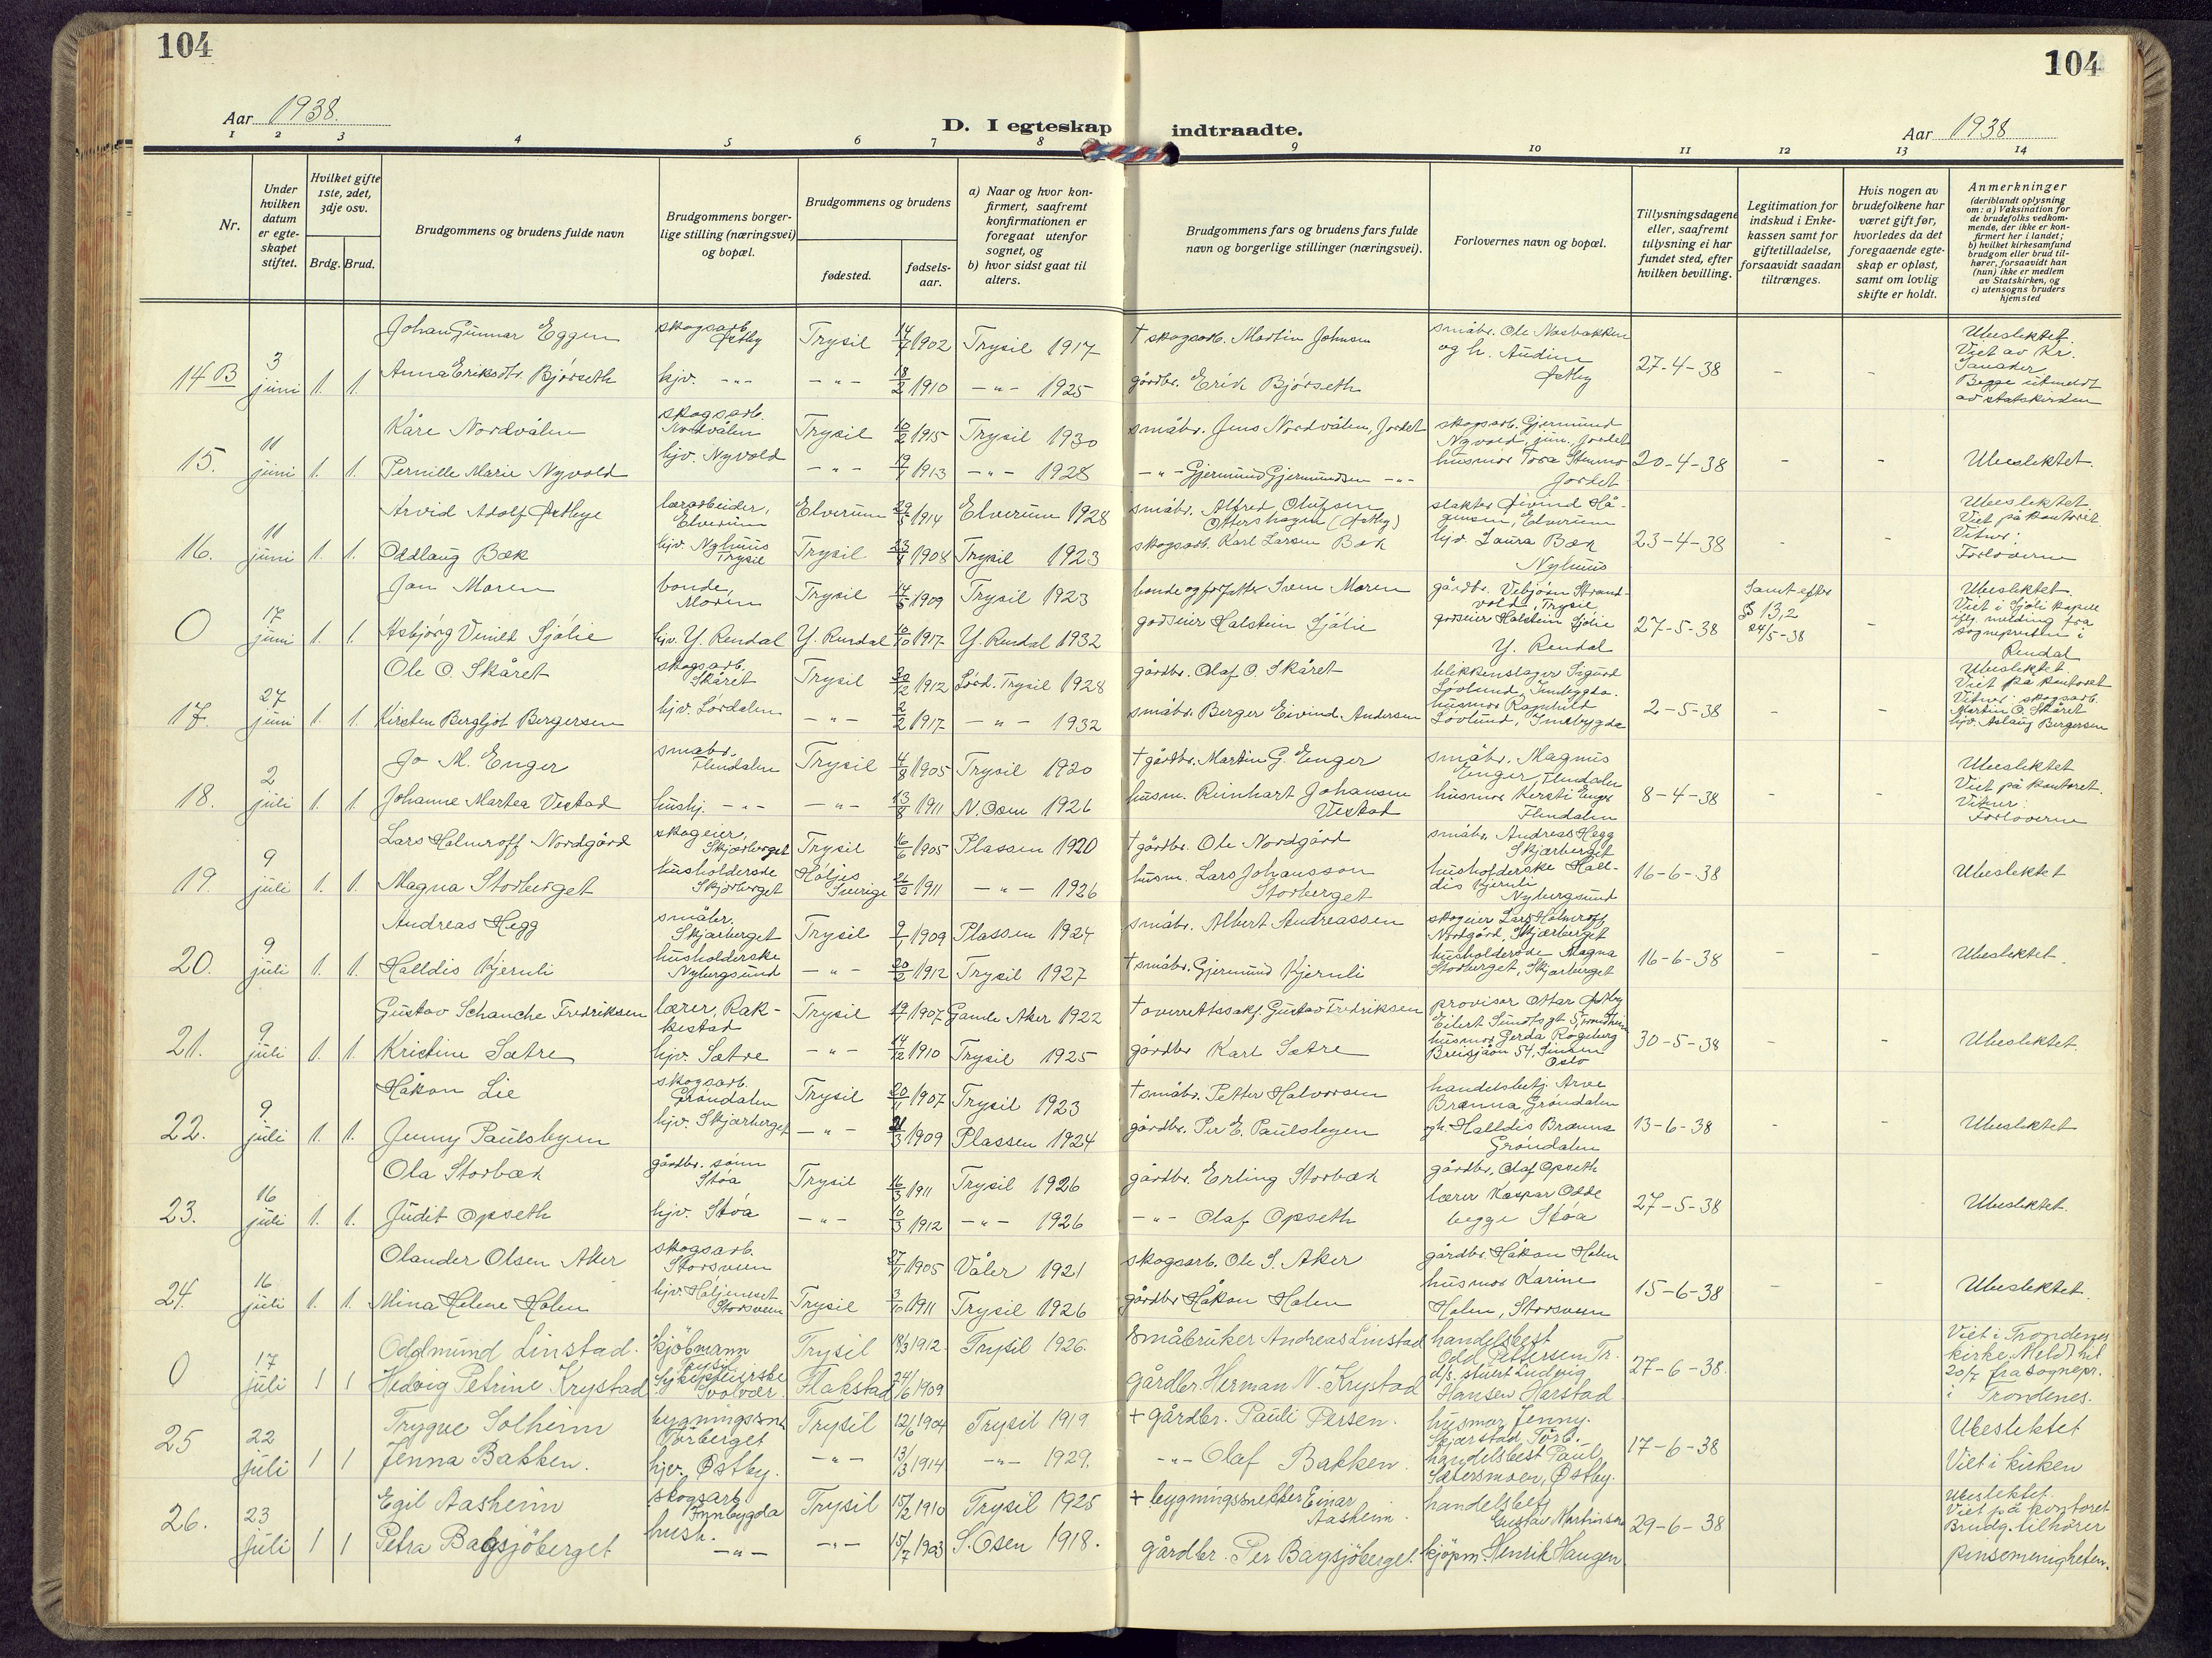 104
104
Aar 1938.
D. I egteskap indtraadte.
Aar 1938
1 2 3 4 5 6 7 8 9 10 11 12 13 14
Nr.
Under hvilken datum er egteskapet stiftet.
Hvilket gifte 1ste, 2det, 3dje osv.
Brdg. Brud.
Brudgommens og brudens fulde navn
Brudgommens borgerlige stilling (næringsvei) og bopæl.
Brudgommens og brudens
fødested.
fødselsaar.
a) Naar og hvor konfirmert, saafremt konfirmationen er foregaat utenfor sognet, og
b) hvor sidst gaat til alters.
Brudgommens fars og brudens fars fulde navn og borgerlige stillinger (næringsvei).
Forlovernes navn og bopæl.
Tillysningsdagene eller, saafremt tillysning ei har fundet sted, efter hvilken bevilling.
Legitimation for indskud i Enkekassen samt for giftetilladelse, forsaavidt saadan tiltrænges.
Hvis nogen av brudefolkene har været gift før, hvorledes da det foregaaende egteskap er opløst, samt om lovlig skifte er holdt.
Anmerkninger
(deriblandt oplysning om: a) Vaksination for de brudefolks vedkommende, der ikke er konfirmert her i landet;
b) hvilket kirkesamfund brudgom eller brud tilhører, forsaavidt han (hun) ikke er medlem av Statskirken, og
c) utensogns bruders hjemsted
Johan Gunnar Eggen skogsarb. Østby Trysil 14/7 1902 Trysil 1917 † skogsarb. Martin Johnsen småbr. Ole Næsbakken og h. Audine Østby
14 B 3 juni 1. 1. Anna Eriksdtr. Bjørseth hjv. -"- -"- 18/2 1910 -"- 1925 gårdbr. Erik Bjørseth 27-4-38 - - Ubeslektet. Viet av Kr. Begge utmeldt av statskirken
Kåre Nordvålen skogsarb. Nordvålen Trysil 10/2 1915 Trysil 1930 småbr. Jens Nordvålen, Jordet skogsarb. Gjermund Nyvold, jun., Jordet
15. 11 juni 1. 1. Pernille Marie Nyvold hjv. Nyvold -"- 19/7 1913 -"- 1928 -"- Gjermund Gjermundsen -"- husmor Tora Jordet 20-4-38 - - Ubeslektet.
Arvid Adolf Østbye Elverum Elverum 29/5 1914 Elverum 1928 småbr. Alfred Olufsen Ottershagen (Østby) slakter Øivind Hågensen, Elverum
16. 11 juni 1. 1. Oddlaug Bæk hjv. Nyhuus Trysil Trysil 1908 Trysil 1923 skogsarb. Karl Larsen Bæk hjv. Laura Bæk Nyhuus 23-4-38 - - Ubeslektet Viet på kontoret. Vitner: Forloverne
Jon Moren bonde, Moren Trysil 14/5 1909 Trysil 1923 bonde og forfatter Sven Moren gårdbr. Vebjørn Strandvold, Trysil
0 17 juni 1. 1. Asbjørg Vinild Sjølie hjv. Y. Rendal Y. Rendal 10/10 1917 Y. Rendal 1932 godseier Halstein Sjølie godseier Halstein Sjølie Y. Rendal 27-5-38 Samt efter § 13,2 24/5-38 - Ubeslektet. Viet i Sjøli kapell iflg. melding fra sognepresten i Rendal
Ole O. Skåret skogsarb. Skåret Trysil 30/12 1912 Lørd. Trysil 1928 gårdbr. Olaf O. Skåret blikkenslager Sigurd Løvlund, Innbygda.
17. 27 juni 1. 1. Kirsten Bergljot Bergersen hjv. Lørdalen -"- 2/2 1917 -"- 1932 småbr. Berger Eivind Andersen husmor Ragnhild Løvlund, Innbygda 2-5-38 - - Ubeslektet Viet på kontoret Vitner: skogsarb. Martin O. Skåret hjv. Aslaug Bergersen
Jo M. Enger småbr. Flendalen Trysil 4/8 1905 Trysil 1920 † gårdbr. Martin G. Enger småbr. Magnus Enger, Flendalen
18. 2 juli 1. 1. Johanne Martea Vestad hushj. -"- -"- 13/8 1911 N. Osen 1926 husm. Reinhart Johansen Vestad husmor Kersti Enger Flendalen 8-4-38 - - Ubeslektet Viet på kontoret. Vitner: Forloverne
Lars Halmroff Nordgård skogeier, Skjærberget Trysil 16/6 1905 Plassen 1920 † gårdbr. Ole Nordgård småbr. Andreas Hegg Skjærberget
19. 9 juli 1. 1. Magna Storberget husholderske Skjærberget Høljes Sverige 1911 -"- 1926 husm. Lars Johansson Storberget husholderske Halldis Kjernli Nybergsund 16-6-38 Ubeslektet
Andreas Hegg småbr. Skjærberget Trysil 1909 Plassen 1924 småbr. Albert Andreassen skogeier Lars Halmroff Nordgård, Skjærberget
20. 9 juli 1. 1. Halldis Kjernli husholderske Nybergsund -"- 20/2 1912 Trysil 1927 † småbr. Gjermund Kjernli husholderske Magna Storberget, Skjærberget 16-6-38 - - Ubeslektet.
Gustav Schanche Fredriksen lærer, Rakkestad Trysil 1907 Gamle Aker 1922 † overrettssakf. Gustav Fredriksen provisor Ottar Østby Eilert Sundts gt 5, Trondheim
21. 9 juli 1. 1. Kristine Sætre hjv. Sætre -"- 14/12 1910 Trysil 1925 gårdbr. Karl Sætre husmor Gerda Rogeberg Breisjåen 54, Oslo 30-5-38 - - Ubeslektet.
Håkon Lie skogsarb. Grøndalen Trysil 20/11 1907 Trysil 1923 † småbr. Petter Halvorsen handelsbetj. Arve Brænna, Grøndalen
22. 9 juli 1. 1. Jenny Paulsbyen hjv. Skjærberget -"- 21/3 1909 Plassen 1924 gårdbr. Per E. Paulsbyen og h. Halldis Brænna Grøndalen 13-6-38 - - Ubeslektet
Ola Storbæk gårdbr. sønn Støa Trysil 16/3 1911 Trysil 1926 gårdbr. Erling Storbæk gårdbr. Olaf Opseth
23. 16 juli 1. 1. Judit Opseth hjv. Støa -"- 10/3 1912 -"- 1926 -"- Olaf Opseth lærer Kaspar Odde begge Støa 27-5-38 Ubeslektet.
Olander Olsen Aker skogsarb. Storsveen 27/11 1905 Våler 1921 skogsarb. Ole S. Aker gårdbr. Håkon Holen
24. 16 juli 1. 1. Mina Helene Holen hjv. Storsveen Trysil 3/10 1911 Trysil 1926 gårdbr Håkon Holen husmor Karine Holen, Storsveen 15-6-38 - - Ubeslektet.
Oddmund Linstad. kjøbmann Trysil Trysil 18/3 1912. Trysil 1926. småbruker Andreas Linstad handelsbest Odd Pettersen, Tr.
0 17 juli 1 1 Hedvig Petrine Krystad Sykepleierske Svolvær Flakstad 24/6 1909 gårdbr. Herman N. Krystad d/s. stuert Ludvig Hansen Harstad 27-6-38. Viet i Trondenes kirke. Meldt hit 20/7 fra sognepr. i Trondenes.
Trygve Solheim bygningssn. Tørberget Trysil 12/6 1904 Trysil 1919 + gårdbr. Pauli Persen. husmor Jenny Skjærstad, Tørb.
25 22 juli 1 1 Jenna Bakken. hjv. Østby. -"- 13/3 1914 -"- 1929. -"- Olaf Bakken. handelsbest Paul Sætersmoen, Østby. 17-6-38 Ubeslektet Viet i kirken
Egil Aasheim skogsarb. Innbygda Trysil 15/2 1910 Trysil 1925 + bygningssnekker Einar Aasheim. handelsbetj Gustav Martinsen
26. 23 juli 1 1 Petra Bagsjöberget hush. -"- -"- 15/7 1903 S. Osen 1918. gårdbr. Per Bagsjöberget. kjöpm. Henrik Haugen 29-6-38 Ubeslektet. Viet på kontoret Brudg. tilhører pinsemenigheten.